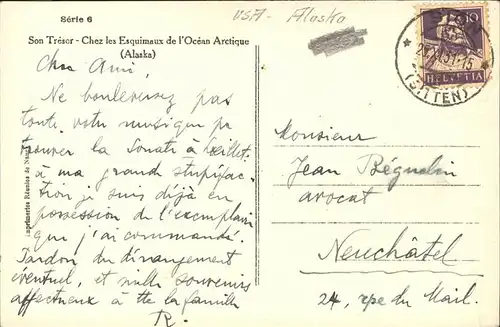 Série 6
USA - Alaska
Son Trésor - Chez les Esquimaux de l'Océan Arctique
(Alaska)
Cher Ami,
Ne bouleversez pas
toute votre musique pr
trouver la Sonate
à ma grande stupéfac-
tion je suis déjà en
possession de l'exemplaire
que j'ai commandé.
Pardon du dérangement
éventuel, et mille souvenirs
affectueux à tte la famille
R.
Imprimeries Réunies de
10
HELVETIA
(SITTEN)
Monsieur
Jean Béguelin
avocat
Neuchâtel
24, rue du Mail.